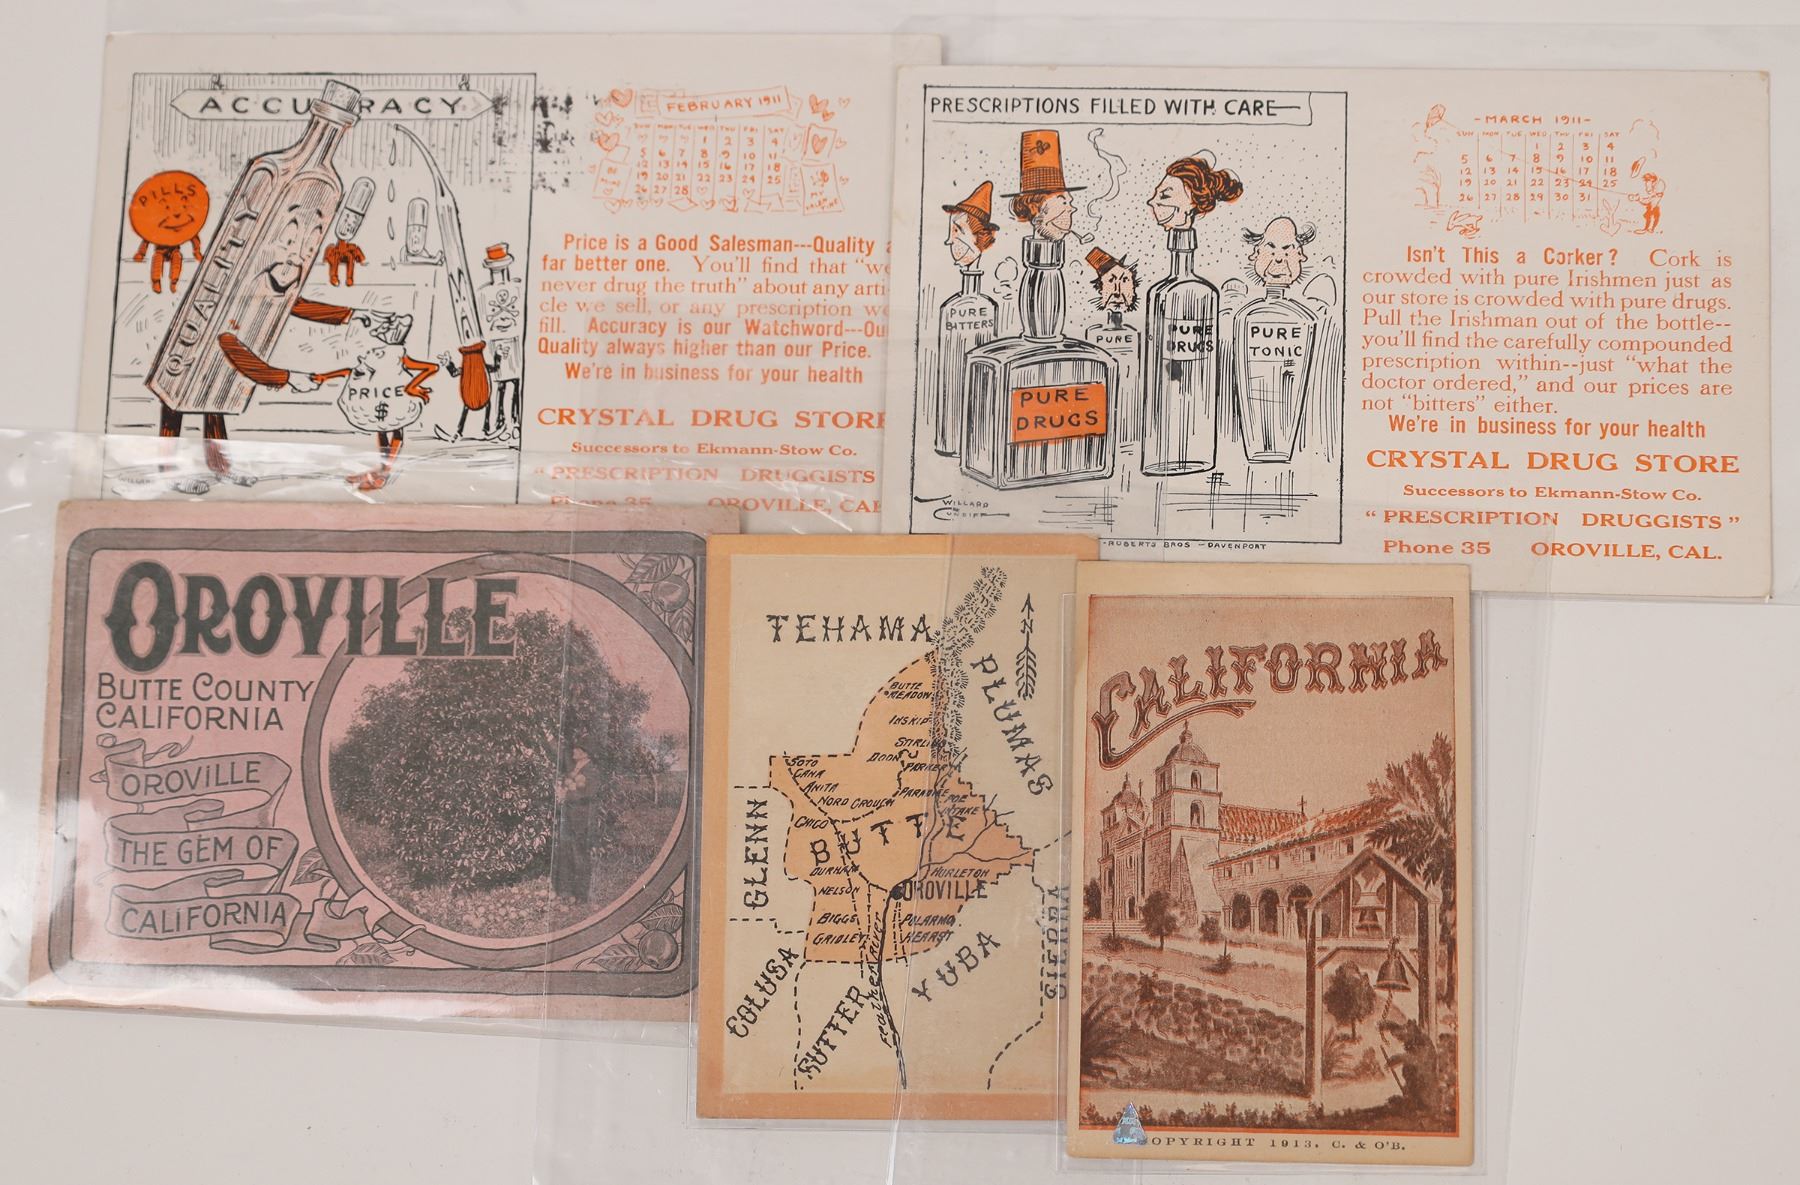 ACCURACY
PILLS
QUALITY
PRICE
$
FEBRUARY 1911
SUN MON TUE WED THU FRI SAT
1 2 3 4
5 6 7 8 9 10 11
12 13 14 15 16 17 18
19 20 21 22 23 24 25
26 27 28
Price is a Good Salesman---Quality a
far better one. You'll find that "we
never drug the truth" about any arti-
cle we sell, or any prescription we
fill. Accuracy is our Watchword---Our
Quality always higher than our Price.
We're in business for your health
CRYSTAL DRUG STORE
Successors to Ekmann-Stow Co.
"PRESCRIPTION DRUGGISTS
Phone 35 OROVILLE, CAL
PRESCRIPTIONS FILLED WITH CARE
PURE
BITTERS
PURE
DRUGS
PURE
PURE
DRUGS
PURE
TONIC
WILLARD
CUNDIFF
-ROBERTS BROS -DAVENPORT
-MARCH 1911-
SUN MON TUE WED THU FRI SAT
1 2 3 4
5 6 7 8 9 10 11
12 13 14 15 16 17 18
19 20 21 22 23 24 25
26 27 28 29 30 31
Isn't This a Corker? Cork is
crowded with pure Irishmen just as
our store is crowded with pure drugs.
Pull the Irishman out of the bottle--
you'll find the carefully compounded
prescription within--just "what the
doctor ordered," and our prices are
not "bitters" either.
We're in business for your health
CRYSTAL DRUG STORE
Successors to Ekmann-Stow Co.
"PRESCRIPTION DRUGGISTS"
Phone 35 OROVILLE, CAL.
OROVILLE
BUTTE COUNTY
CALIFORNIA
OROVILLE
THE GEM OF
CALIFORNIA
TEHAMA
PLUMAS
N
BUTTE
MEADOW
INSKIP
STIRLING
SOTO
CANA
ANITA
NORD CROUCH
PARADISE
POE
INTAKE
CHICO
BUTTE
GLENN
DURHAM
HURLETON
NELSON
OROVILLE
BIGGS
PALARMO
GRIDLEY
HEARST
COLUSA
SUTTER
Feather River
YUBA
SIERRA
CALIFORNIA
COPYRIGHT 1913. C. & O'B.